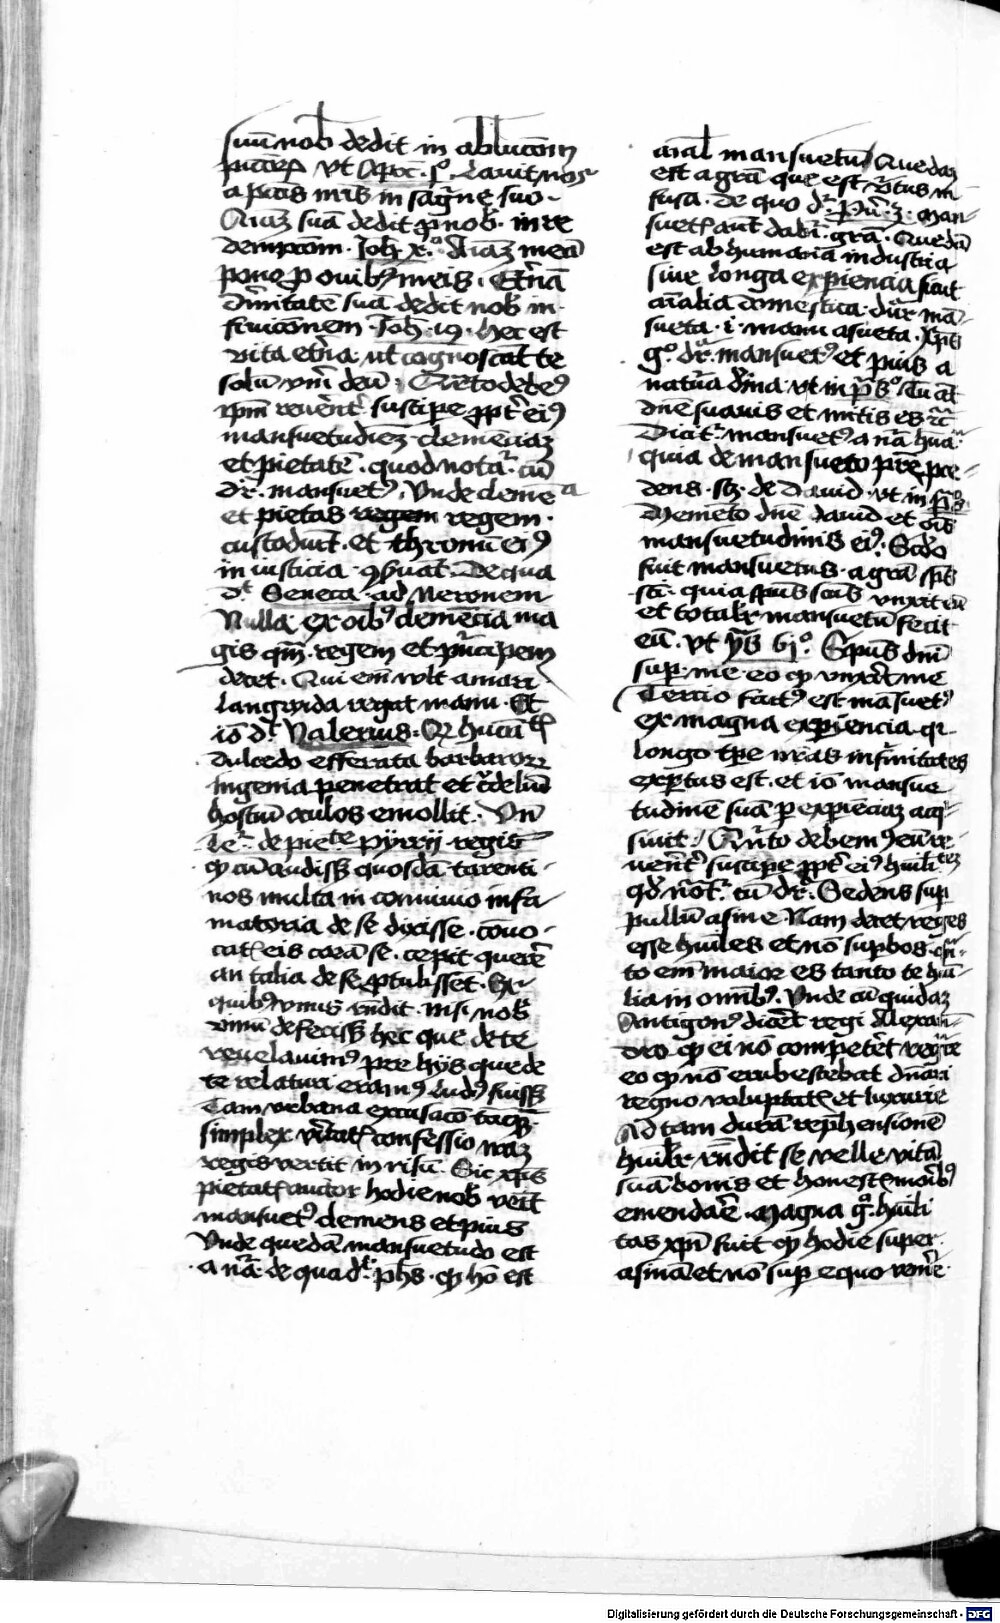 suū nob̄ dedit in ablucōem
pctōrꝝ vt Apoc̄. pº. Lavit nos
a pctis nr̄is in sāgͥne suo.
Aīaꝫ suā dedit ꝓ nob̄. in re
dempcōem. Joh̄ x.º Aīaꝫ meā
pono ꝓ ovibꝰ meis. Et̄nā
divītatē suā dedit nob̄ in
fruicōnem. Joh̄. 17. hec est
vita et̄na. ut cognoscāt te
solū vm̄ deū. Qͣrto debeꝰ
xp̄m reuēnt̄. suscipe ꝓpt̄ eiꝰ
mansuetudīeꝫ clemēciaꝫ
et pietatē. quod notat̄. cū
dr̄. mansuetꝰ. Unde clemē a
et pietas regem regem.
custodiūt. et thronū eiꝰ
in iusticia. ꝯbuāt. De qua
dt Seneca. ad Neronem
Nulla. ex oībꝰ clemēcia ma
gis qm̄. regem et pͥncipem
decet. Qui em̄ vlt amari
languida regat manu. Et
iō dt Valerius. Qꝫ hūanꝭ
dulcedo efferata barbarorꝝ
Ingenia penetrat et cͥdeliū
hostiū oculos emollit. Un̄
le.ͬ de pietē pyrrij regis
qꝫ cū audissꝫ quosdā tarenti
nos multa in conuiuio infa
matoria de se dixisse. cōuo
catꝭ eis corā se. cepit querē
an talia de se ꝓtulissēt. Ex
quibꝰ vnus rn̄dit. nisi nob̄
vinū defecissꝫ hec que de te
reuelauimꝰ pre hijs que de
te relaturi eramꝰ ludꝰ fuissꝫ
Tam urbana excusacō tāqꝫ
simplex vͥtatꝭ confessio iraꝫ
regis vertit in risū. Sic xp̄s
pietatꝭ auctor hodie nob̄ venīt
mansuetꝰ clemens et pius
Unde quedā mansuetudo est
a nā. de qua dt. ph̄s. qꝫ hō est
aīal mansuetū Quedaꝫ
est a grā que est vͥtus in
fusa. De quo dr̄. Pu̅. 3. Man
suetꝭ aut̄ dabit̄. grā. Quedā
est ab humana industria
siue longa exꝑiencia sicut
aīalia domestica. dūr̄ mā
sueta. i. manu asueta. xp̄s
gº. dr̄. mansuetꝰ et pius a
natūa dīna. vt in ps̄º. Tu aūt
dn̄e suauis et mitis es ꝛc̄
Dicit̄. mansuetꝰ a nā hūa.
quia de mansueto pr̄e pce
dens. sꝫ. de Dauid vt in psº
Memēto dn̄e dauid et oīs
mansuetudinis eiꝰ. Scd̄o
fuit mansuetus. a grā sps̄
sc̄i. quia spūs scūs vnxit eū
et totalr̄ mansuetū fecit
eū. vt ys̄ 61º. Spūs dn̄i
sup me. eo qꝫ vnxit me
Tercio factꝰ est māsuetꝰ
ex magna exꝑiencia. qꝛ
longo tp̄e nr̄as infirmitates
expertus est. et iō mansue
tudinē suā ꝑ exꝑienciaꝫ acq
siuit. Quīto debemꝰ eū re
uēnt̄ suscipe ꝓpt̄ eiꝰ hūilitꝫ
qd̄ notat̄. cū dr̄. Sedens sup
pullū asine. Nam decet reges
esse hūiles et nō supbos. qn̄
to em̄ maior es tanto te hūi
lia in omībꝰ. Unde cū quidaꝫ
Antigonꝰ dicēt regi Alexan
dro qꝫ ei nō competēt regnē
eo qꝫ nō erubescebat dn̄ari
regno voluptatꝭ et luxurie
Ad tam durā rep̄hensionē
hūilr̄ rn̄dit se velle vitā
suā bonis et honestꝭ moribꝰ
emendaē. Magna gº. hūili
tas xp̄i fuit qꝫ hodie super.
asinā et nō sup equo venē.
Digitalisierung gefördert durch die Deutsche Forschungsgemeinschaft - DFG